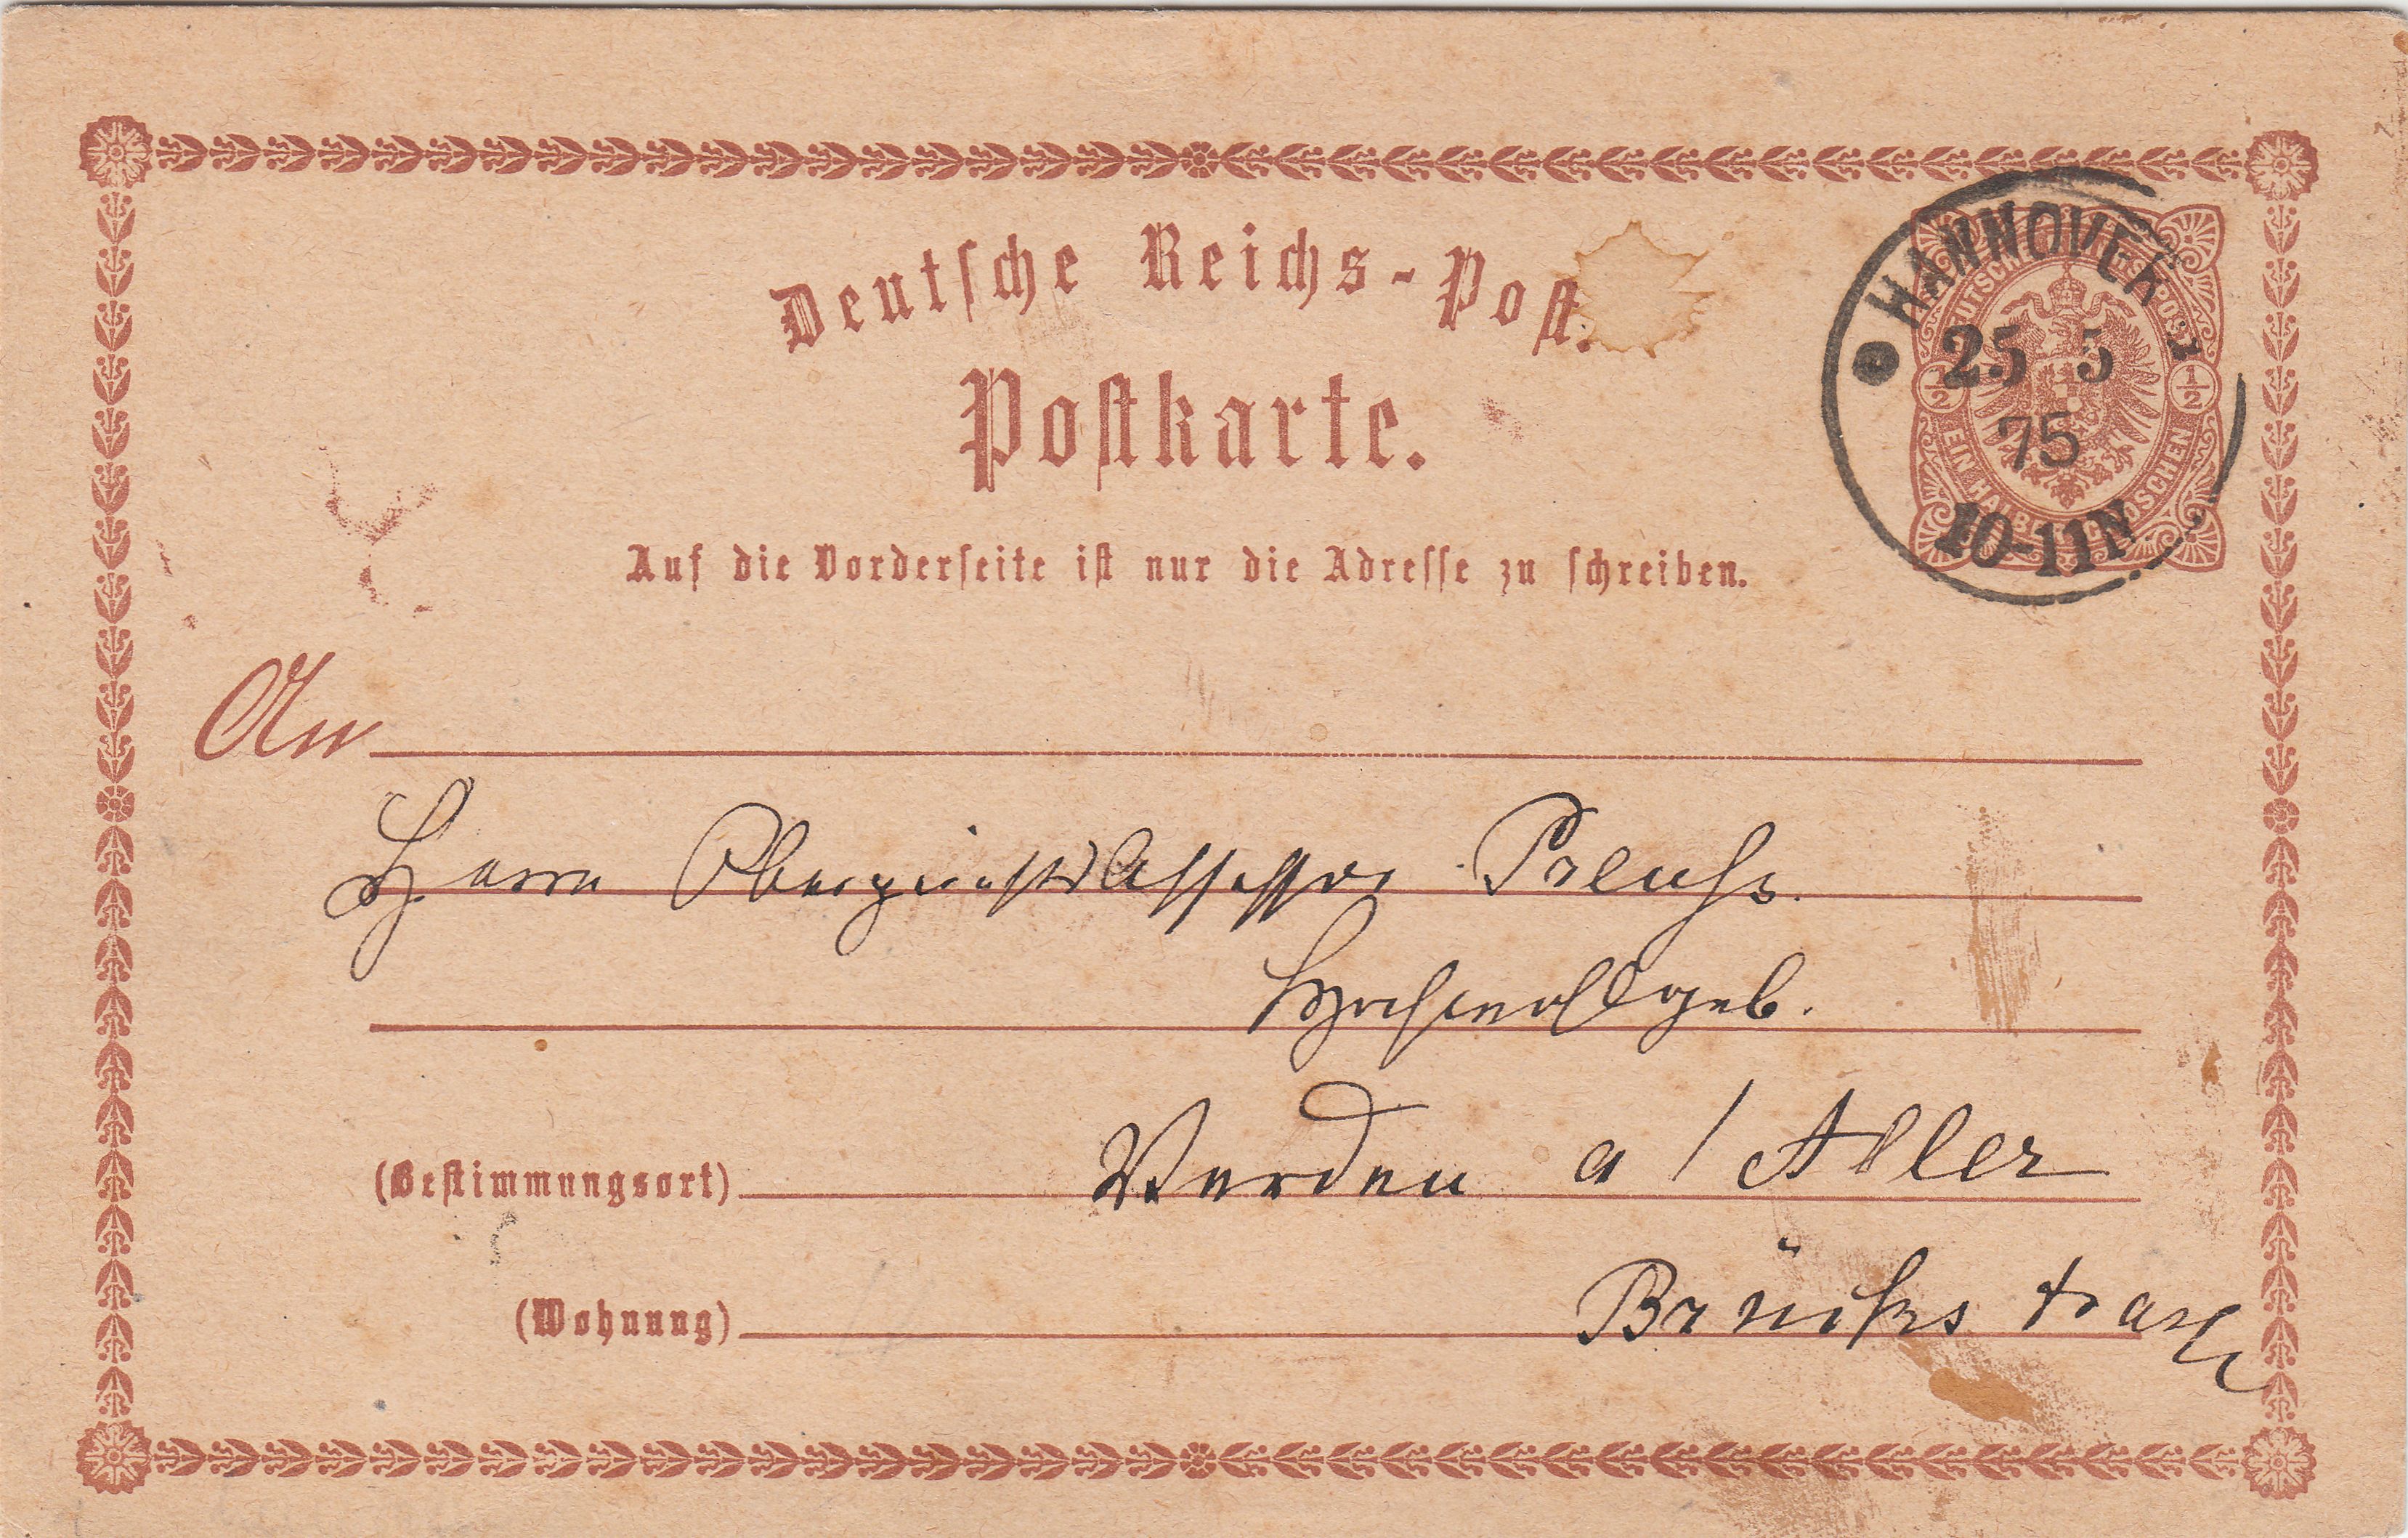 Deutsche Reichs-Post.
Postkarte.
Auf die Vorderseite ist nur die Adresse zu schreiben.
HANNOVER 1
25 5
75
10-11N
DEUTSCHE REICHSPOST
1/2 1/2
EIN HALBER GROSCHEN
An
Herrn Obergerichts Assessor Preuß.
Hochwohlgeb.
(Bestimmungsort) Verden a/Aller
(Wohnung) Brückstraße